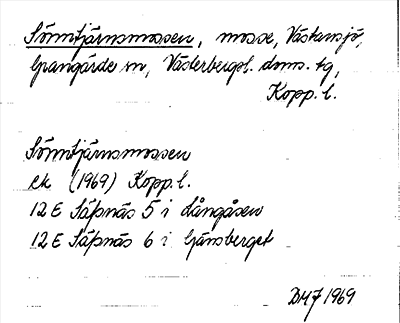 Sönntjärnsmossen, mosse, Västansjö,
Grangärde sn, Västerbergsl. doms. tg,
Kopp. l.
Sönntjärnsmossen
ek (1969) Kopp. l.
12 E Säfsnäs 5 i Långåsen
12 E Säfsnäs 6 i Gänsberget
DMJ 1969